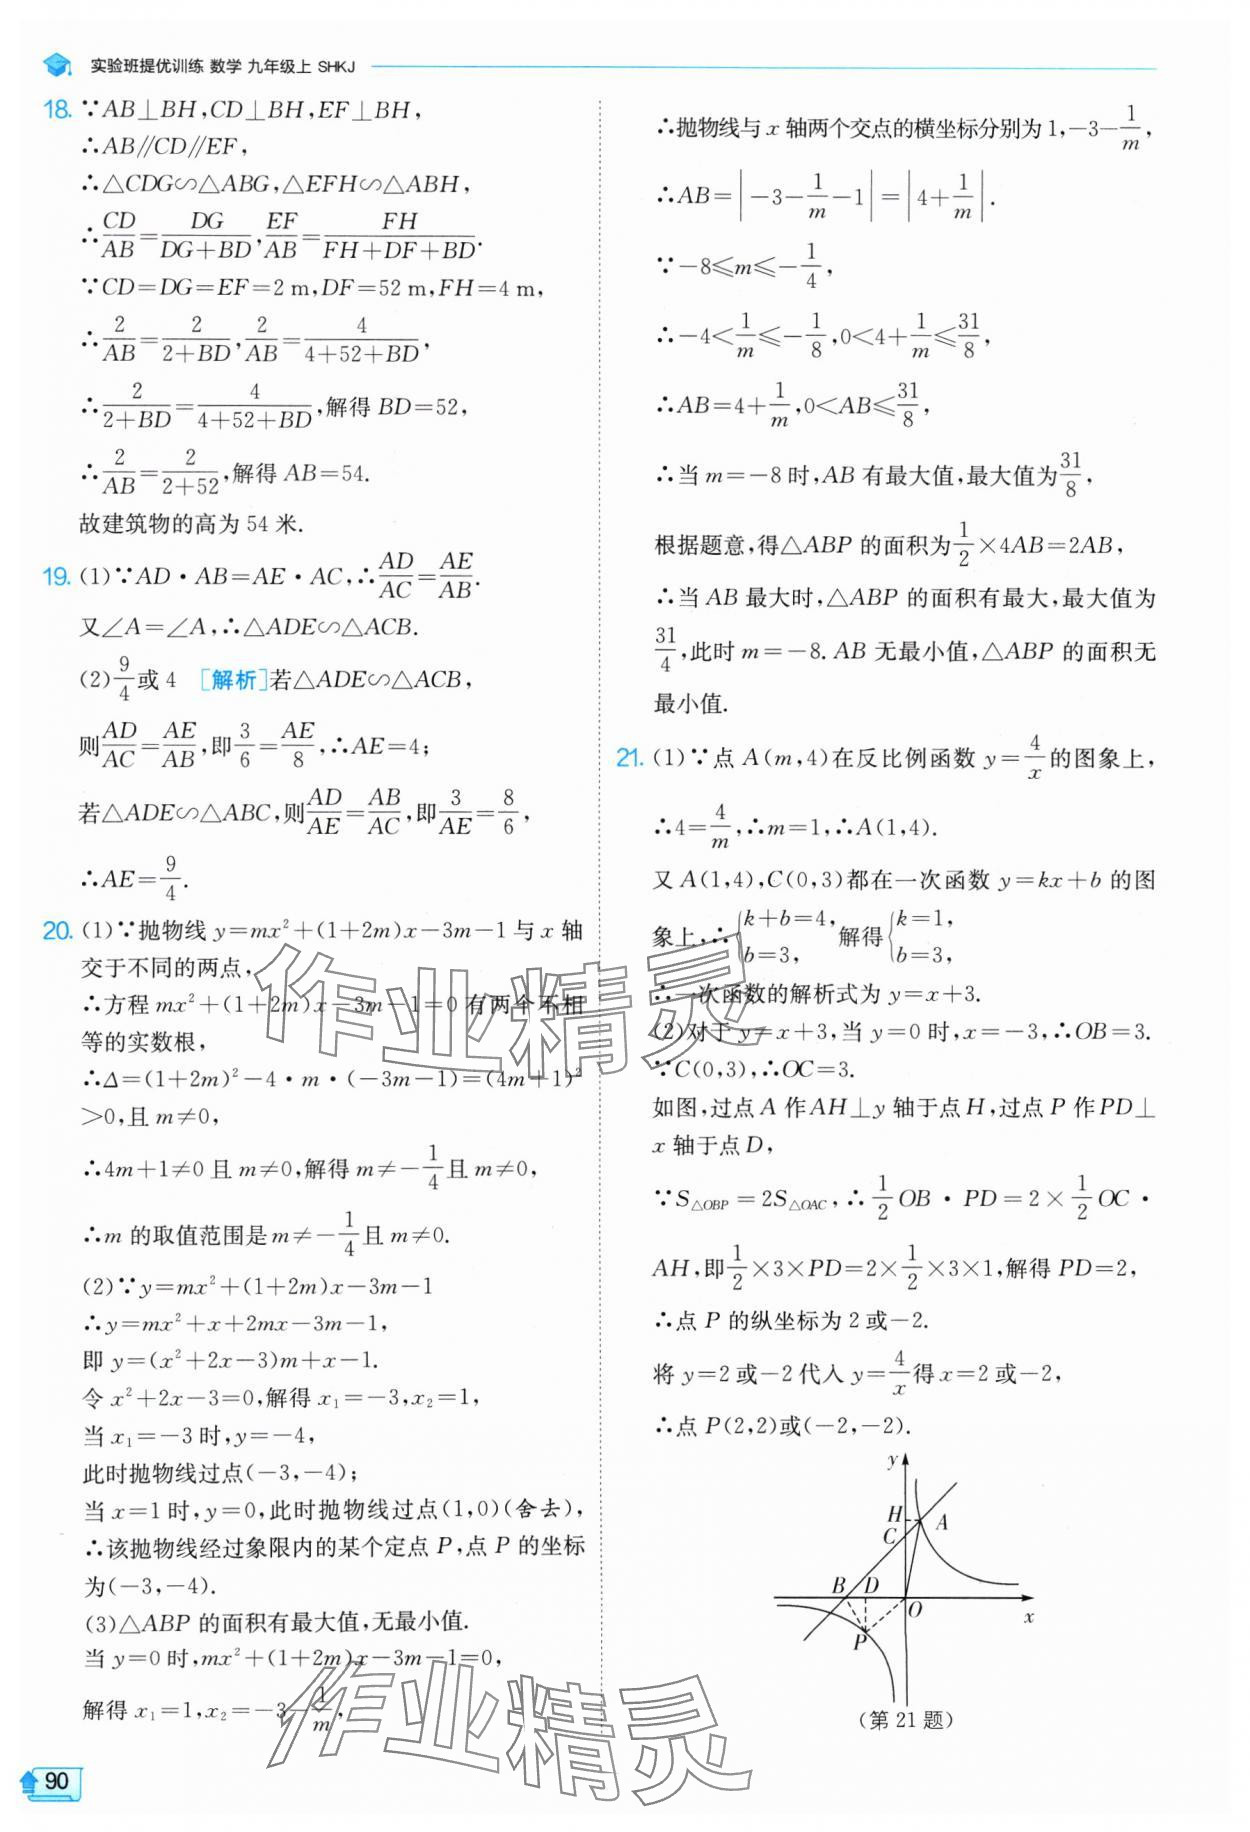 实验班提优训练 数学 九年级上 SHKJ
18. ∵AB⊥BH,CD⊥BH,EF⊥BH,
∴AB∥CD∥EF,
∴△CDG∽△ABG,△EFH∽△ABH,
∴CD/AB=DG/(DG+BD),EF/AB=FH/(FH+DF+BD).
∵CD=DG=EF=2 m,DF=52 m,FH=4 m,
∴2/AB=2/(2+BD),2/AB=4/(4+52+BD),
∴2/(2+BD)=4/(4+52+BD),解得 BD=52,
∴2/AB=2/(2+52),解得 AB=54.
故建筑物的高为 54 米.
19. (1)∵AD·AB=AE·AC,∴AD/AC=AE/AB.
又∠A=∠A,∴△ADE∽△ACB.
(2)9/4或 4 [解析]若△ADE∽△ACB,
则AD/AC=AE/AB,即3/6=AE/8,∴AE=4;
若△ADE∽△ABC,则AD/AE=AB/AC,即3/AE=8/6,
∴AE=9/4.
20. (1)∵抛物线 y=mx²+(1+2m)x-3m-1 与 x 轴
交于不同的两点,
∴方程 mx²+(1+2m)x-3m-1=0 有两个不相
等的实数根,
∴Δ=(1+2m)²-4·m·(-3m-1)=(4m+1)²
>0,且 m≠0,
∴4m+1≠0 且 m≠0,解得 m≠-1/4且 m≠0,
∴m 的取值范围是 m≠-1/4且 m≠0.
(2)∵y=mx²+(1+2m)x-3m-1
∴y=mx²+x+2mx-3m-1,
即 y=(x²+2x-3)m+x-1.
令 x²+2x-3=0,解得 x₁=-3,x₂=1,
当 x₁=-3 时,y=-4,
此时抛物线过点(-3,-4);
当 x=1 时,y=0,此时抛物线过点(1,0)(舍去),
∴该抛物线经过象限内的某个定点 P,点 P 的坐标
为(-3,-4).
(3)△ABP 的面积有最大值,无最小值.
当 y=0 时,mx²+(1+2m)x-3m-1=0,
解得 x₁=1,x₂=-3-1/m,
∴抛物线与 x 轴两个交点的横坐标分别为 1,-3-1/m,
∴AB=|-3-1/m-1|=|4+1/m|.
∵-8≤m≤-1/4,
∴-4<1/m≤-1/8,0<4+1/m≤31/8,
∴AB=4+1/m,0<AB≤31/8,
∴当 m=-8 时,AB 有最大值,最大值为31/8,
根据题意,得△ABP 的面积为1/2×4AB=2AB,
∴当 AB 最大时,△ABP 的面积有最大,最大值为
31/4,此时 m=-8. AB 无最小值,△ABP 的面积无
最小值.
21. (1)∵点 A(m,4)在反比例函数 y=4/x的图象上,
∴4=4/m,∴m=1,∴A(1,4).
又 A(1,4),C(0,3)都在一次函数 y=kx+b 的图
象上,∴{k+b=4, b=3, 解得{k=1, b=3,
∴一次函数的解析式为 y=x+3.
(2)对于 y=x+3,当 y=0 时,x=-3,∴OB=3.
∵C(0,3),∴OC=3.
如图,过点 A 作 AH⊥y 轴于点 H,过点 P 作 PD⊥
x 轴于点 D,
∵S△OBP=2S△OAC,∴1/2OB·PD=2×1/2OC·
AH,即1/2×3×PD=2×1/2×3×1,解得 PD=2,
∴点 P 的纵坐标为 2 或-2.
将 y=2 或-2 代入 y=4/x得 x=2 或-2,
∴点 P(2,2)或(-2,-2).
y
H
A
C
B D
O
x
P
(第 21 题)
作业精灵
作业精灵
90